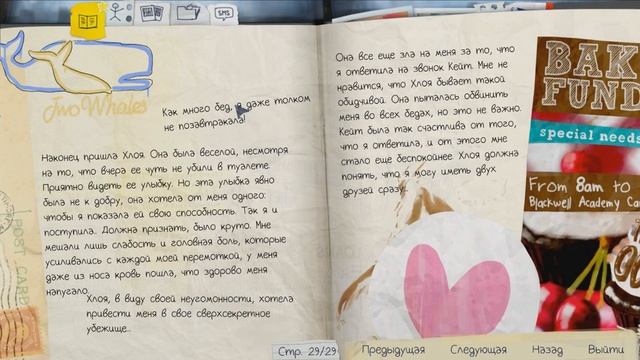 SMS
Two Whales
Как много бед, а даже толком
не позавтракала!
Наконец пришла Хлоя. Она была веселой, несмотря
на то, что вчера ее чуть не убили в туалете.
Приятно видеть ее улыбку. Но эта улыбка явно
была не к добру, она хотела от меня одного:
чтобы я показала ей свою способность. Так я и
поступила. Должна признать, было круто. Мне
мешали лишь слабость и головная боль, которые
усиливались с каждой моей перемоткой, у меня
даже из носа кровь пошла, что здорово меня
напугало.
Хлоя, в виду своей неугомонности, хотела
привести меня в свое сверхсекретное
убежище...
Она все еще зла на меня за то, что
я ответила на звонок Кейт. Мне не
нравится, что Хлоя бывает такой
обидчивой. Она пыталась обвинить
меня во всех бедах, но это не важно.
Кейт была так счастлива от того,
что я ответила, и от этого мне
стало ещё беспокойнее. Хлоя должна
понять, что я могу иметь двух
друзей сразу...
BAK
FUND
special needs
From 8am to
Blackwell Academy Ca
Стр. 29/29
Предыдущая Следующая Назад Выйти